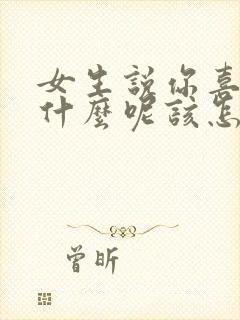 女生説你喜
什麼呢該怎
曾昕